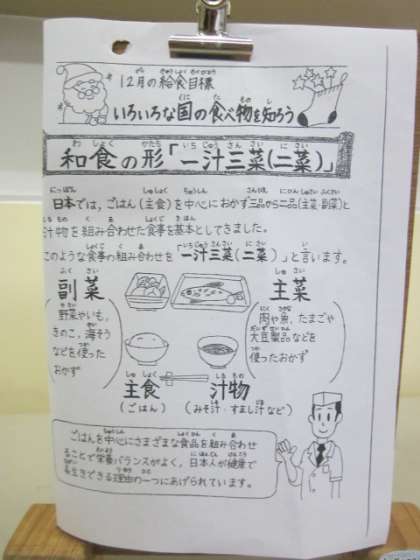 12月の給食目標
いろいろな国の食べ物を知ろう
和食の形「一汁三菜(二菜)」
日本では，ごはん(主食)を中心におかず三品から二品(主菜・副菜)と
汁物を組み合わせた食事を基本としてきました。
このような食事の組み合わせを「一汁三菜(二菜)」と言います。
副菜
野菜やいも，
きのこ，海そう
などを使った
おかず
主菜
肉や魚，たまごや
大豆製品などを
使ったおかず
主食
(ごはん)
汁物
(みそ汁・すまし汁など)
ごはんを中心にさまざまな食品を組み合わせ
ることで栄養バランスがよく，日本人が健康で
長生きできる理由の一つにあげられています。